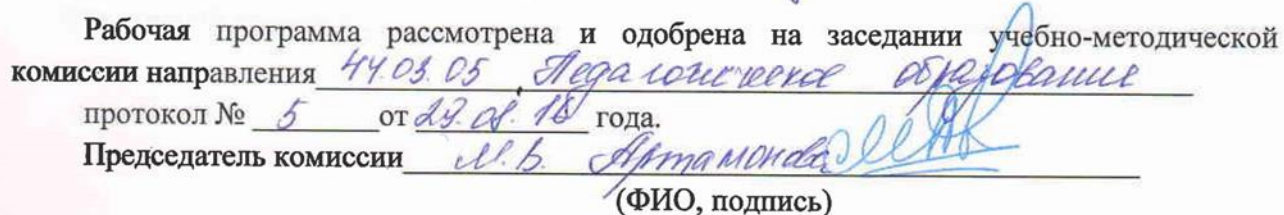 Рабочая программа рассмотрена и одобрена на заседании учебно-методической
комиссии направления 44.03.05 Педагогическое образование
протокол № 5 от 29.08.16 года.
Председатель комиссии М.В. Артамонова
(ФИО, подпись)